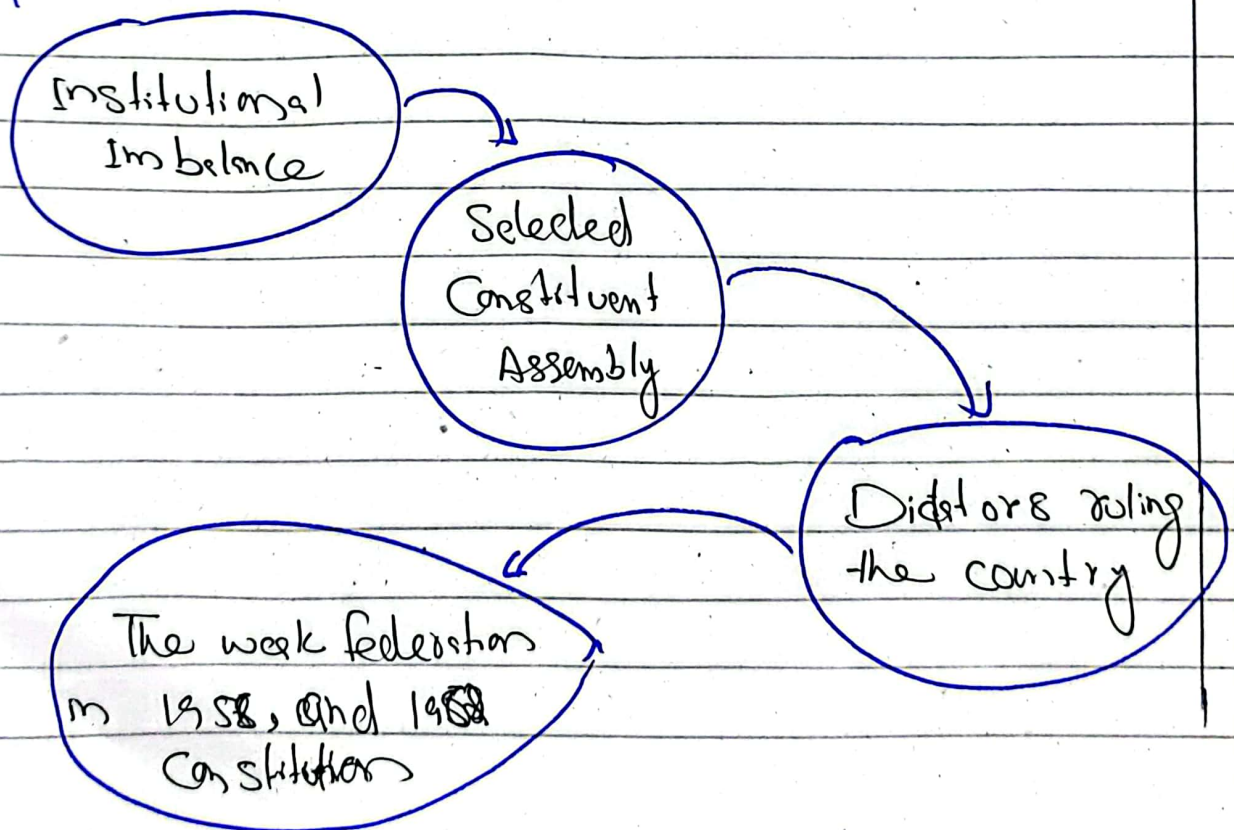 Institutional
Imbalance
Selected
Constituent
Assembly
Dictators ruling
the country
The weak federation
in and
Constitutions